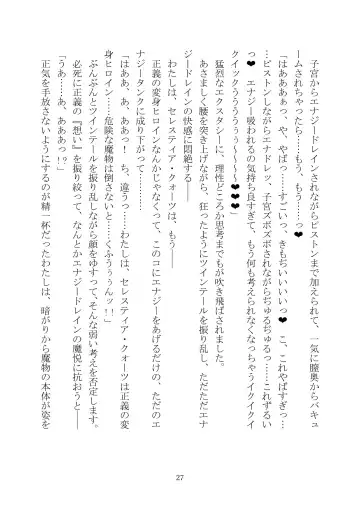 子宮からエナジードレインされながらピストンまで加えられて、一気に膣奥からバキュ
ームされちゃったら……もう、もう……っ❤
「はああぁっ、や、やばっ……すごいっ、きもぢいいいいっ❤ こ、これやばすぎっ…
…ピストンしながらエナドレッ、子宮ズボズボされながらぢゅるぢゅるっ……これずるい
っ❤ エナジー吸われるの気持ち良すぎて、もう何も考えられなくなっちゃうイクイクイ
クイックうううううぅ～～～～～❤❤❤」
猛烈なエクスタシーに、理性どころか思考までもが吹き飛ばされました。
あさましく腰を突き上げながら、狂ったようにツインテールを振り乱し、ただただエナ
ジードレインの快感に悶絶する――
わたしは、セレスティア・クォーツは、もう――
正義の変身ヒロインなんかじゃなくって、このコにエナジーをあげるだけの、ただのエ
ナジータンクに成り下がって――
「はああ、あ、あああっ！ ち、違うっ……わたしは、セレスティア・クォーツは正義の変
身ヒロイン……危険な魔物は倒さないと……くふうぅぅんッ！！」
ぶんぶんとツインテールを振り乱しながら顔をゆすって、そんな弱い考えを否定します。
必死に正義の『想い』を振り絞って、なんとかエナジードレインの魔悦に抗おうと――
「うあ……あ、あああっ!?」
正気を手放さないようにするのが精一杯だったわたしは、暗がりから魔物の本体が姿を
27